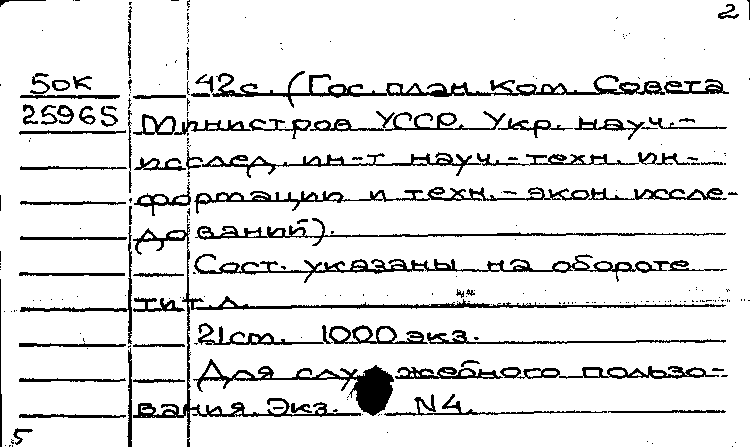 2
50к 42с. (Гос. план. Ком. Совета
25965 Министров УССР. Укр. науч.-
исслед. ин-т науч.-техн. ин-
формации и техн.-экон. иссле-
дований).
Сост. указаны на обороте
тит. л.
21см. 1000 экз.
Для служебного пользо-
вания. Экз. N4.
5